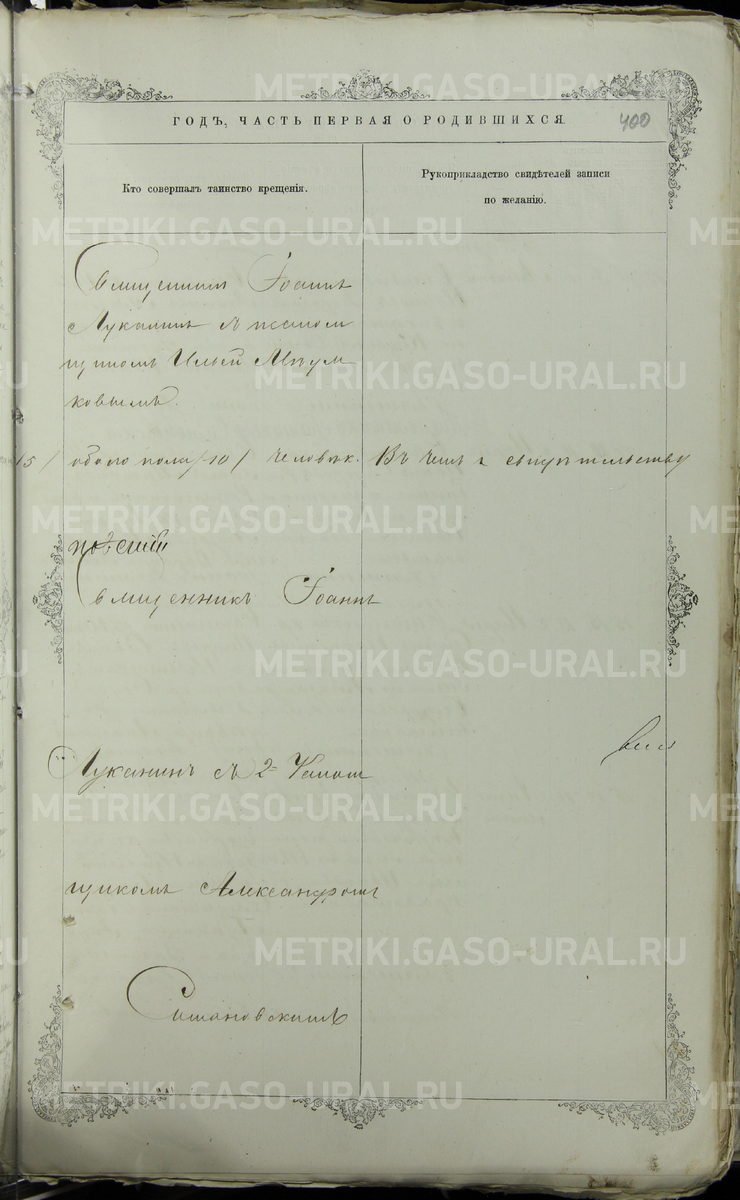 ГОДЪ, ЧАСТЬ ПЕРВАЯ О РОДИВШИХСЯ.
400
Кто совершалъ таинство крещенія.
Рукоприкладство свидѣтелей записи
по желанію.
Священникъ Іоаннъ
Луканинъ съ псалом
щикомъ Ильей
ковымъ.
15/ обоего пола /10/ человѣк. Въ чемъ и свидѣтельству
Священникъ Іоаннъ
Луканинъ съ 2 Псалом
щикомъ Александромъ
METRIKI.GASO-URAL.RU